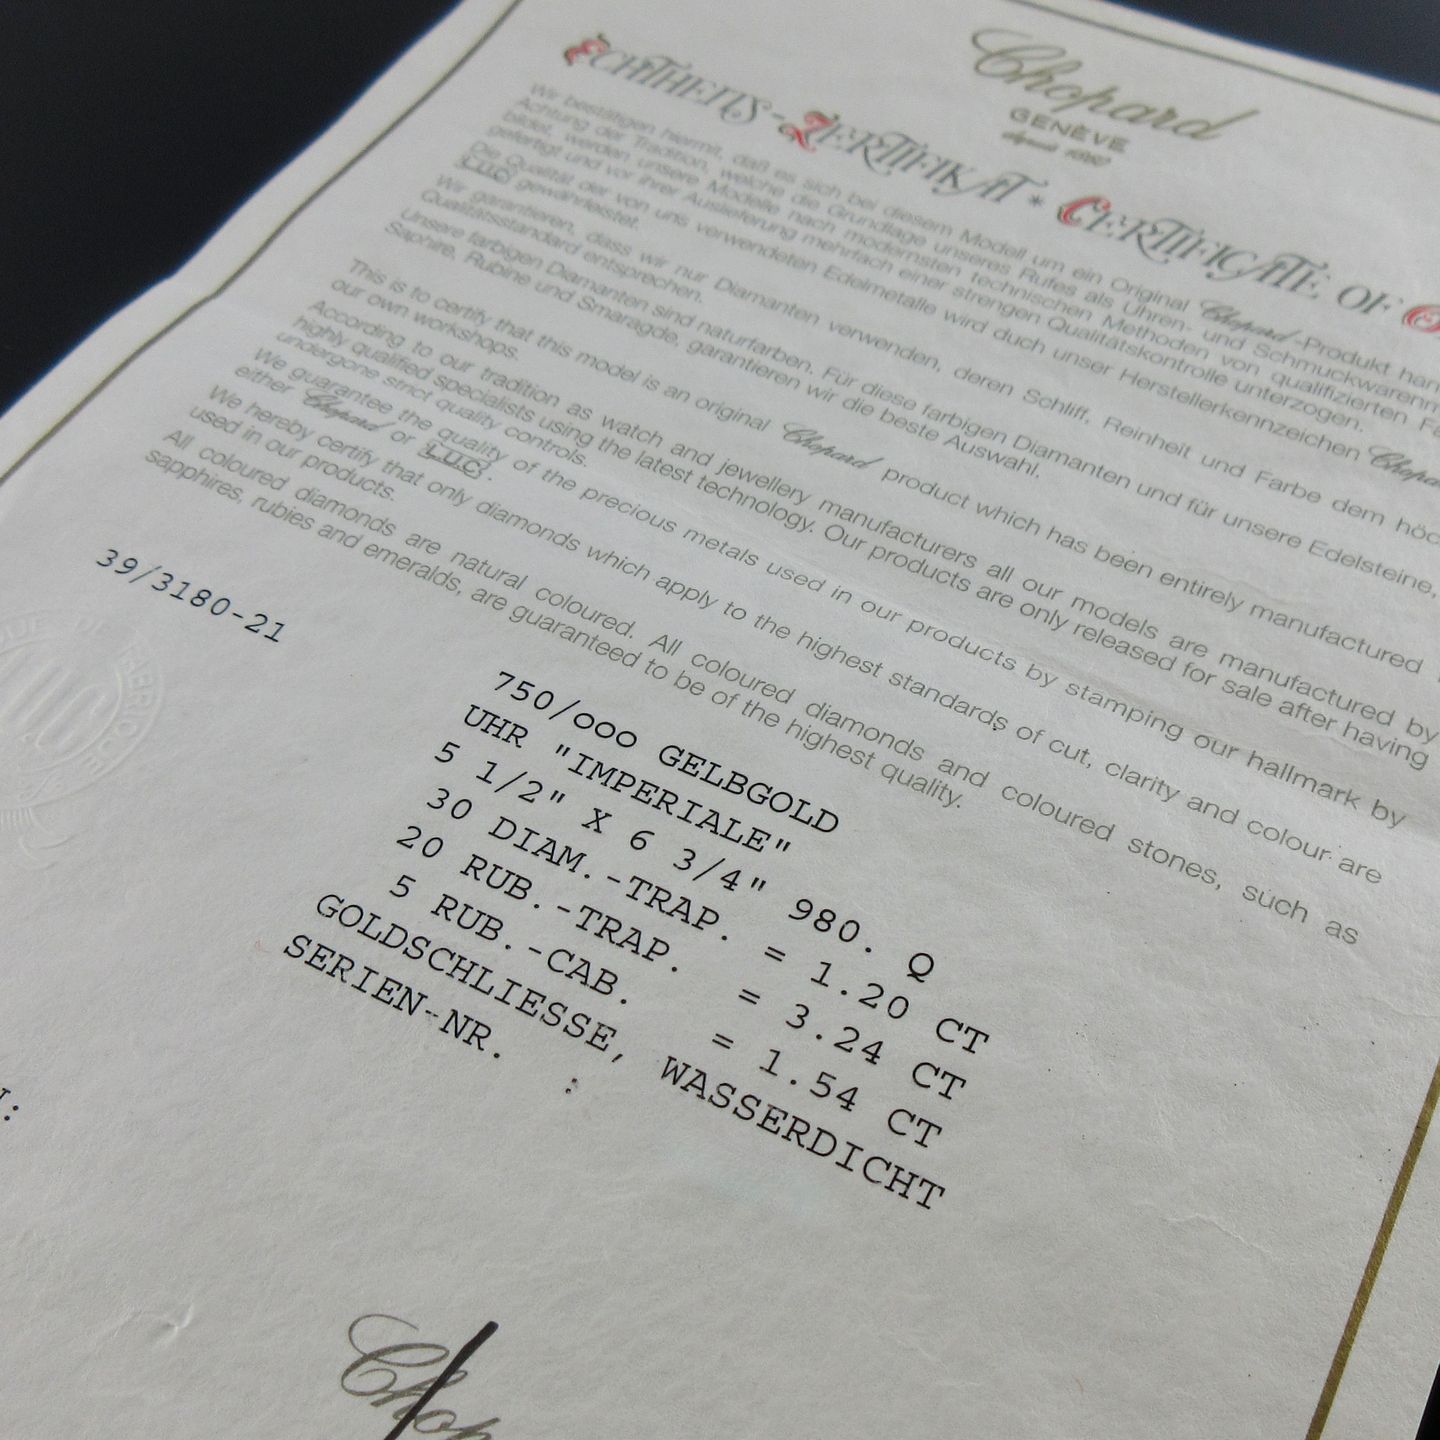 Chopard
GENÈVE
depuis 1860
ECHTHEITS-ZERTIFIKAT * CERTIFICATE OF
Wir bestätigen hiermit, daß es sich bei diesem Modell um ein Original Chopard-Produkt
Achtung der Tradition, welche die Grundlage unseres Rufes als Uhren- und Schmuckwaren
bildet, werden unsere Modelle nach modernsten technischen Methoden von qualifizierten
gefertigt und vor ihrer Auslieferung mehrfach einer strengen Qualitätskontrolle unterzogen.
Die Qualität der von uns verwendeten Edelmetalle wird duch unser Herstellerkennzeichen
L.U.C gewährleistet.
Wir garantieren, dass wir nur Diamanten verwenden, deren Schliff, Reinheit und Farbe dem
Qualitätsstandard entsprechen.
Unsere farbigen Diamanten sind naturfarben. Für diese farbigen Diamanten und für unsere Edelsteine,
Saphire, Rubine und Smaragde, garantieren wir die beste Auswahl.
This is to certify that this model is an original Chopard product which has been entirely manufactured
our own workshops.
According to our tradition as watch and jewellery manufacturers all our models are manufactured by
highly qualified specialists using the latest technology. Our products are only released for sale after having
undergone strict quality controls.
We guarantee the quality of the precious metals used in our products by stamping our hallmark by
either Chopard or L.U.C.
We hereby certify that only diamonds which apply to the highest standards of cut, clarity and colour are
used in our products.
All coloured diamonds are natural coloured. All coloured diamonds and coloured stones, such as
sapphires, rubies and emeralds, are guaranteed to be of the highest quality.
39/3180-21
750/ooo GELBGOLD
UHR "IMPERIALE"
5 1/2" X 6 3/4" 980. Q
30 DIAM.-TRAP. = 1.20 CT
20 RUB.-TRAP. = 3.24 CT
5 RUB.-CAB. = 1.54 CT
GOLDSCHLIESSE, WASSERDICHT
SERIEN-NR. :